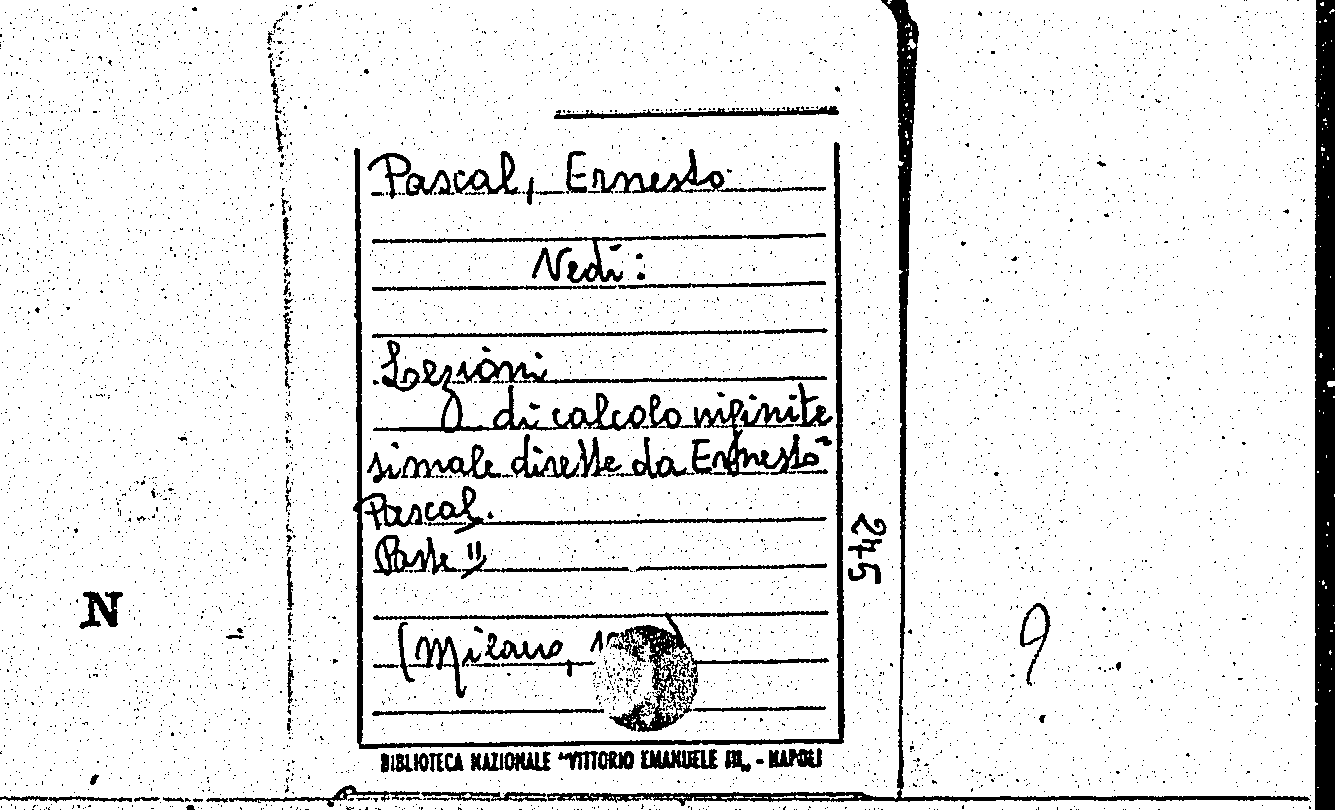 Pascal, Ernesto
Vedi:
Lezioni
di calcolo infinite
simale dirette da Ernesto
Pascal.
Parte II
(Milano,
245
N
BIBLIOTECA NAZIONALE "VITTORIO EMANUELE III" - NAPOLI